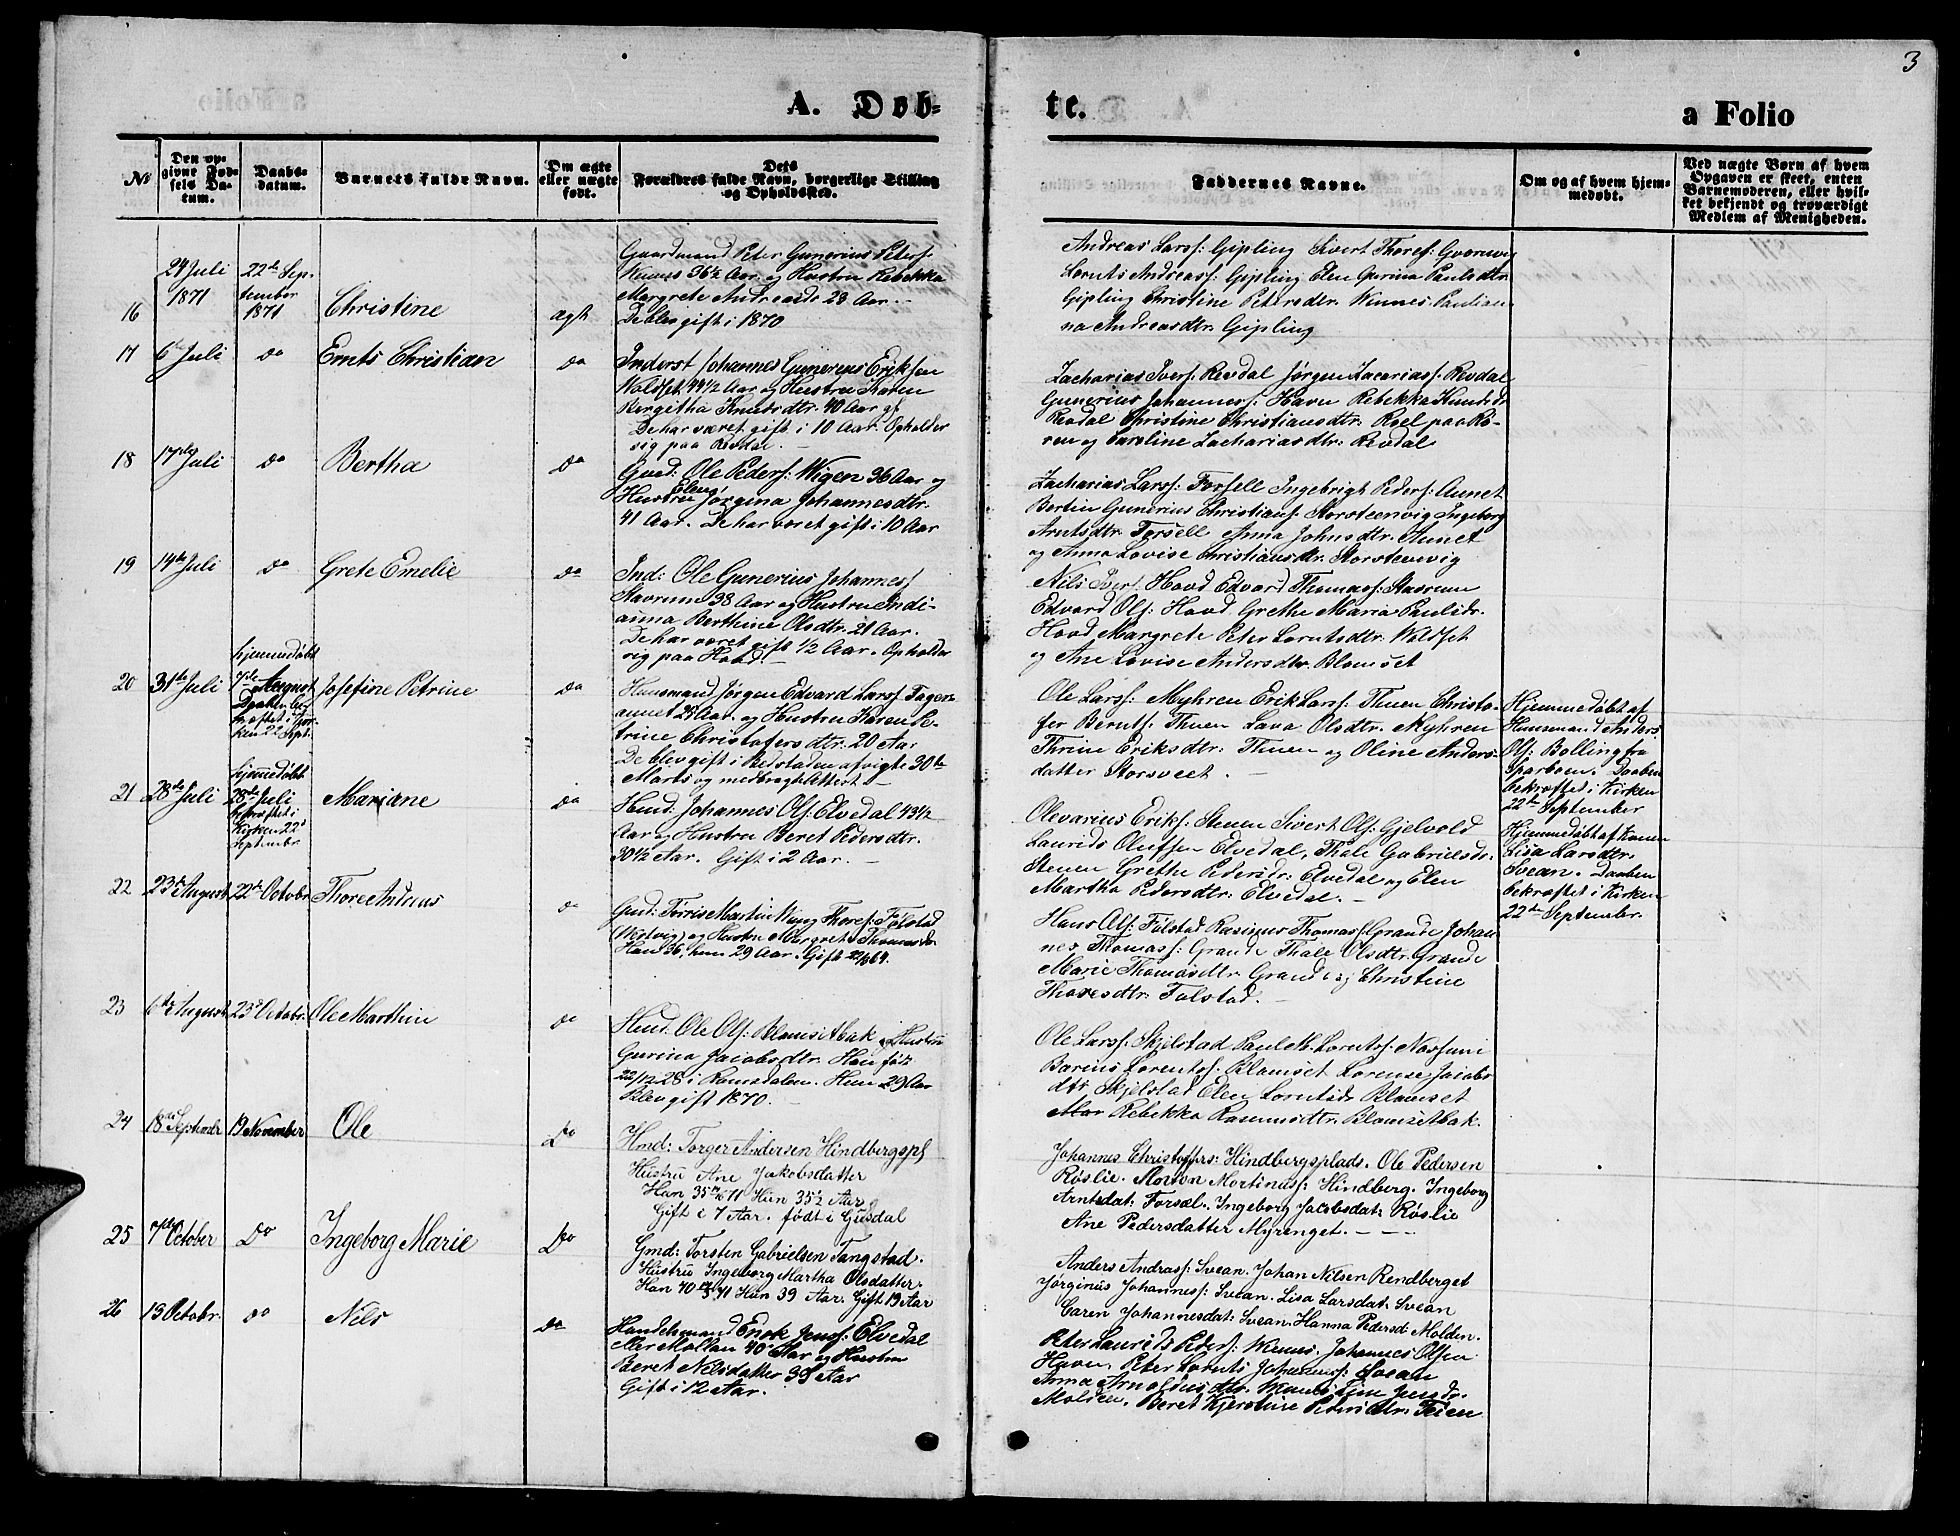 3
A. Døb-
te.
a Folio
No
Den op-
givne Fød-
sels Da-
tum.
Daabs-
datum.
Barnets fulde Navn.
Om ægte
eller uægte
født.
Dets
Forældres fulde Navn, borgerlige Stilling
og Opholdssted.
Faddernes Navne.
Om og af hvem hjem-
medøbt.
Ved uægte Børn af hvem
Opgaven er skeet, enten
Barnemoderen, eller hvil-
ket bekjendt og troværdigt
Medlem af Menigheden.
16
24 Juli
1871
22de Sep-
tember
1871
Christine
ægte
Gaardmand Peter Gunerius Peters:
36½ Aar og Hustru Rebekka
Margrete Andreasdr 28 Aar.
De blev gift i 1870
Andreas Larss: Gipling Sivert Thores:
Lornts Andreass: Gipling Elen Gurina Paulsdtr.
Gipling Christine Petersdtr. Winnes Paulian-
na Andreasdtr. Gipling
17
6te Juli
do
Ernts Christian
do
Inderst Johannes Gunerius Eriksen
Voldset 44½ Aar og Hustru Karen
Bergitha Knudsdtr. 40 Aar gl
De har været gift i 10 Aar. Opholder
sig paa Revdal. —
Zacharias Ivers: Revdal Jørgen Zacarias: Revdal
Gunerius Johannes: Havn Rebekka Knudsdr
Revdal Christine Christiansdtr: Roel paa Rø-
ren og Caroline Zachariasdtr: Revdal
18
17de Juli
do
Bertha
do
Gmd: Ole Peders: Wigen 36 Aar og
Hustru Elen Jørgina Johannesdtr.
41 Aar. De har været gift i 10 Aar
Zacharias Larss: Forsell Ingebrigt Peders: Aunet
Bertin Gunerius Christians: Storstenvig Ingeborg
Arntsdtr. Forsell Anna Johnsdtr. Aunet
og Anna Lovise Christiansdtr. Storstenvig
19
14de Juli
do
Grete Emelie
do
Ind: Ole Gunerius Johannes:
Stavrum 38 Aar og Hustru Indi-
anna Berthine Olsdtr. 21 Aar.
De har været gift ½ Aar. Opholder
sig paa Hoad. —
Nils Ivers: Hoad Edvard Thomass: Stavrum
Edvard Ols: Hoad, Grethe Maria Paulsdr.
Hoad Margrete Peter Lorntsdtr. Voldset
og Ane Lovise Andersdtr. Blomset
20
31te Juli
hjemmedøbt
7de August
Daaben be-
kræftet i Kir-
ken 22 Sept.
Josefine Petrine
do
Huusmand Jørgen Edvard Larss: Fager-
aunet 25 Aar og Hustru Karen Pe-
trine Christofersdtr. 20 Aar
De blev gift i Ledstaden afvigte 30te
Marts og medbragt Attest. —
Ole Larss: Myhren Erik Larss: Thuen Christo-
fer Bernts: Thuen Lava Olsdtr. Myhren
Thrine Eriksdtr: Thuen og Oline Anders-
datter Storsveet. —
Hjemmedøbt af
Huusmand Anders
Ols: Bolling fra
Sparboen. Daaben
bekræftet i Kirken
22de September
21
28de Juli
hjemmedøbt
28de Juli
bekræftet i
Kirken 22d
September
Mariane
do
Hmd: Johannes Ols: Elvedal 43½
Aar og Hustru Beret Pedersdtr.
30½ Aar. Gift i 2 Aar. —
Olevarius Eriks: Stenen Sivert Ols: Gjelvold
Laurids Olufsen Elvedal, Thale Gabrielsdr.
Stenen Grethe Pedersdr: Elvedal og Elen
Martha Pedersdtr: Elvedal. —
Hjemmedøbt af Konen
Lisa Larsdtr.
Svean. Daaben
bekræftet i Kirken
22de September.
22
23de August
22de October
Thore Andreas
do
Gmd: Torris Martin Thores: Følstad
og Hustru Margrete Thomasdr
Han 36, hun 29 Aar. Gift 64.
Hans Ols: Følstad Rasmus Thomass: Grande Johan-
nes Thomass: Grande Thale Olsdtr. Grande
Marie Thomasdtr. Grande og Christine
Thoresdtr. Følstad. —
23
6te August
23d Octobr.
Ole Marthin
do
Hmd: Ole Ols: Blomsetbak og Hustru
Gurina Jacobsdtr. Han født
22/12 28 i Romsdalen. Hun 29 Aar
Blev gift 1870. —
Ole Larss: Skjelstad Paul M. Lornts:
Barins Lorents: Blomset Lorense Jacobs
dtr Skjelstad Elen Lorntsdr Blomset
Mar Rebekka Rasmusdtr. Blomsetbak.
24
18de September
19 November
Ole
Do
Hmd: Torger Andersen Hindbergspl
Hustru Ane Jakobsdatter
Han 35 Hun 35½ Aar
Gift i 7 Aar. født i Gusdal
Johannes Christoffers: Hindbergsplads. Ole Pedersen
Røslie. Morten Mortinuss: Hindberg. Ingeborg
Arntsdat: Forsæl. Ingeborg Jacobsdat: Røslie
Ane Pedersdatter Myrenget. — — —
25
7de October
Do
Ingeborg Marie
Do
Gmd: Torsten Gabrielsen Tangstad.
Hustru Ingeborg Martha Olsdatter.
Han 40 Hun 39 Aar. Gift 19 Aar
Anders Andrass: Svean. Johan Nilsen Rendberget
Jørginus Johanness: Svean. Lisa Larsdat: Svean
Caren Johannesdat: Svean. Hanna Pedersd: Molden.
26
19 Octobr.
do
Nils
Do
Handelsmand Enok Jenss: Elvedal
eller Mollan 40 Aar og Hustru
Beret Nilsdatter 38 Aar
Gift i 12 Aar.
Peter Laurids Peders: Winnes. Johannes Olsen
Havn, Peter Lornts Johannes: Svean
Anna Arnoldusdtr.
Molden. Beret Kjerstine Petersdtr. Feien